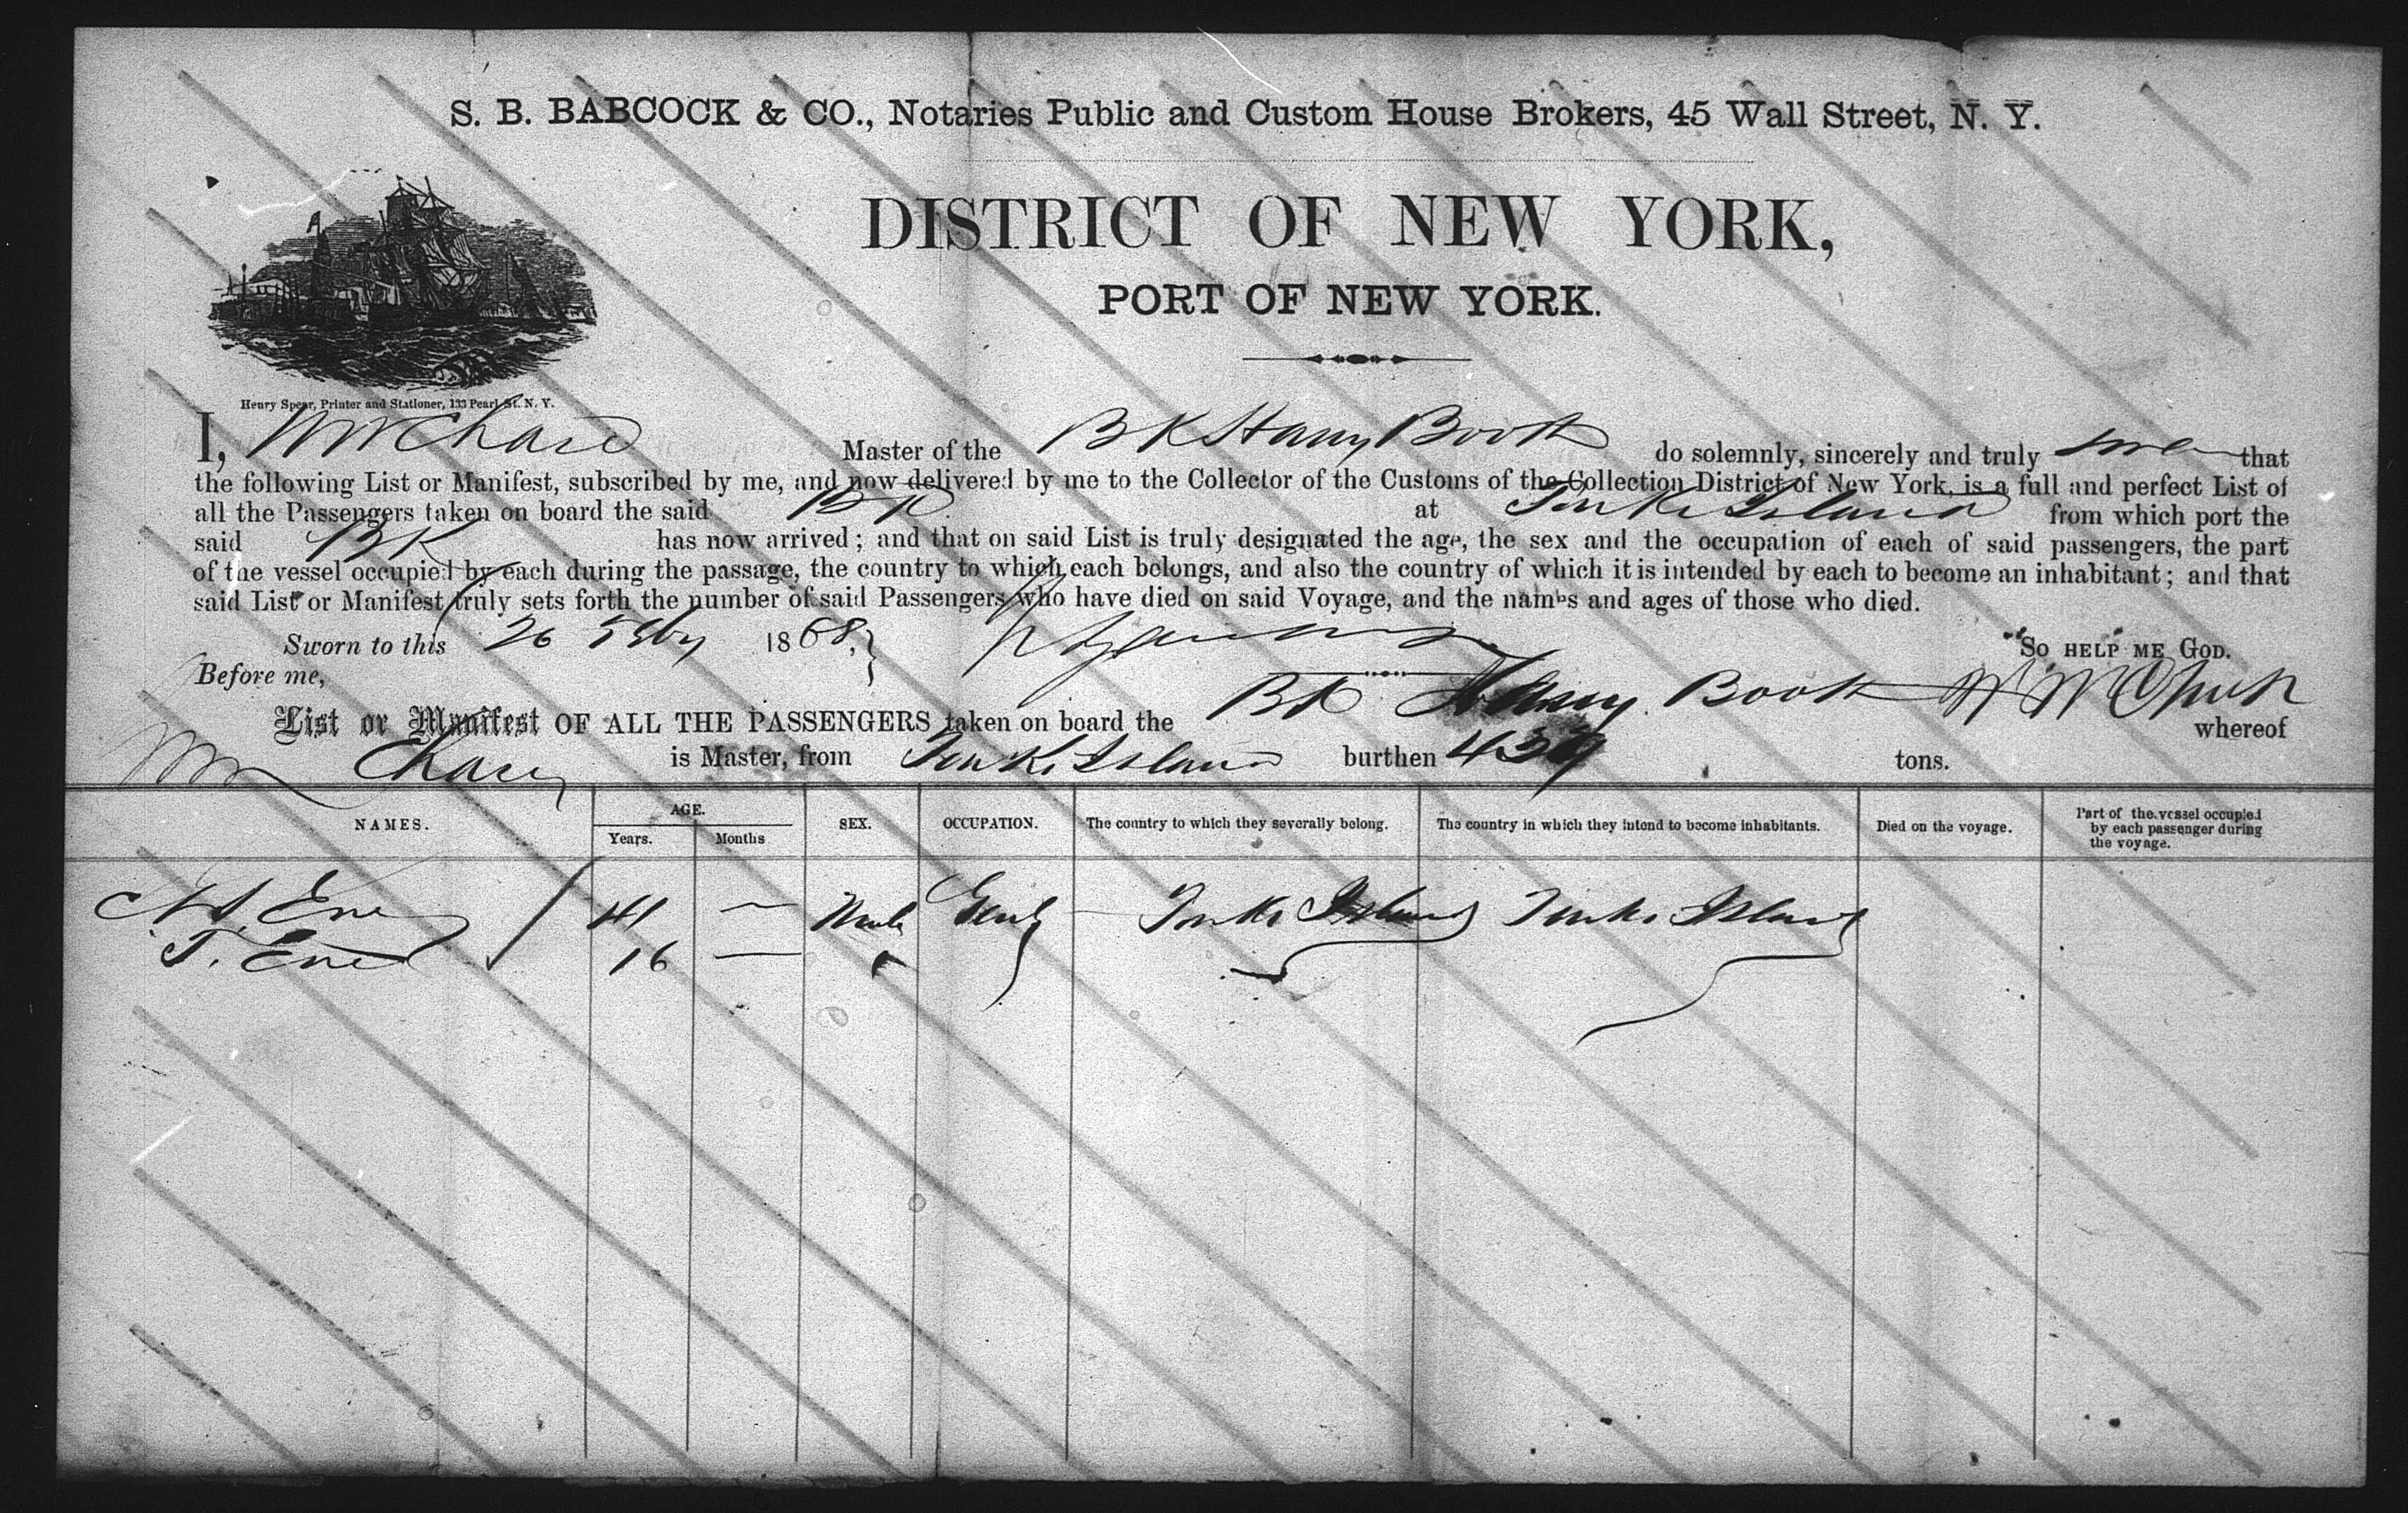 S. B. BABCOCK & CO., Notaries Public and Custom House Brokers, 45 Wall Street, N. Y.
DISTRICT OF NEW YORK,
PORT OF NEW YORK.
Henry Spear, Printer and Stationer, 133 Pearl St. N. Y.
I, Wm Chase Master of the BK Harry Booth do solemnly, sincerely and truly that
the following List or Manifest, subscribed by me, and now delivered by me to the Collector of the Customs of the Collection District of New York, is a full and perfect List of
all the Passengers taken on board the said BK at Turks Island from which port the
said BK has now arrived; and that on said List is truly designated the age, the sex and the occupation of each of said passengers, the part
of the vessel occupied by each during the passage, the country to which each belongs, and also the country of which it is intended by each to become an inhabitant; and that
said List or Manifest truly sets forth the number of said Passengers who have died on said Voyage, and the names and ages of those who died.
Sworn to this 26 Feby 1868, So HELP ME GOD.
Before me,
List or Manifest OF ALL THE PASSENGERS taken on board the BK Harry Booth whereof
Wm Chase is Master, from Turks Island burthen tons.
NAMES. AGE. SEX. OCCUPATION. The country to which they severally belong. The country in which they intend to become inhabitants. Died on the voyage. Part of the vessel occupied by each passenger during the voyage.
Years. Months
41 — Male Turks Island Turks Island
T. 16 —